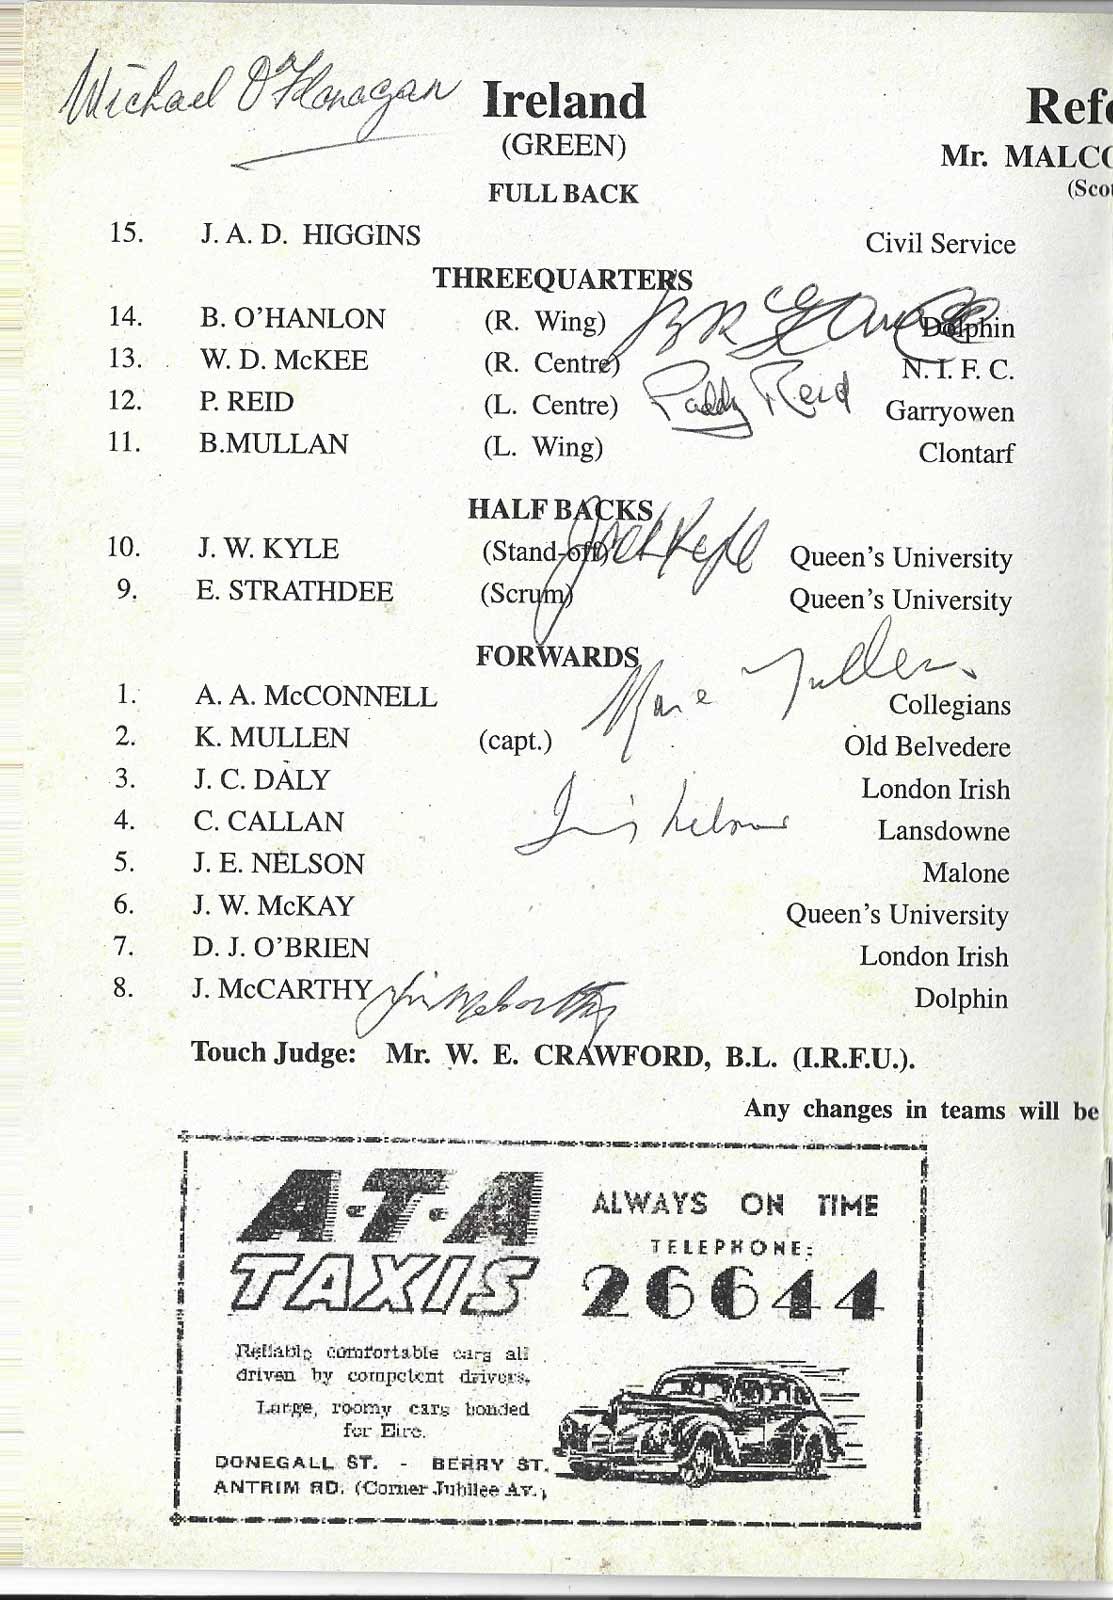 Michael O'Flanagan
Ireland
Refe
(GREEN)
Mr. MALCO
(Scot
FULL BACK
15. J. A. D. HIGGINS Civil Service
THREEQUARTERS
14. B. O'HANLON (R. Wing) Dolphin
13. W. D. McKEE (R. Centre) N. I. F. C.
12. P. REID (L. Centre) Paddy Reid Garryowen
11. B.MULLAN (L. Wing) Clontarf
HALF BACKS
10. J. W. KYLE (Stand-off) Jack Kyle Queen's University
9. E. STRATHDEE (Scrum) Queen's University
FORWARDS
1. A. A. McCONNELL Collegians
2. K. MULLEN (capt.) Old Belvedere
3. J. C. DALY London Irish
4. C. CALLAN Lansdowne
5. J. E. NELSON Malone
6. J. W. McKAY Queen's University
7. D. J. O'BRIEN London Irish
8. J. McCARTHY Jim McCarthy Dolphin
Touch Judge: Mr. W. E. CRAWFORD, B.L. (I.R.F.U.).
Any changes in teams will be
A·T·A
TAXIS
ALWAYS ON TIME
TELEPHONE:
26644
Reliable comfortable cars all
driven by competent drivers.
Large, roomy cars bonded
for Eire.
DONEGALL ST. - BERRY ST.
ANTRIM RD. (Corner Jubilee Av.)